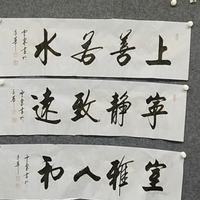 上善若水
寧静致遠
室雅人和